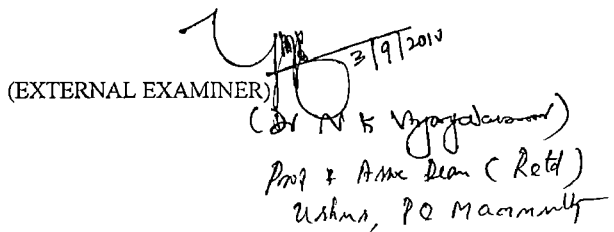 3/9/2010
(EXTERNAL EXAMINER)
(Dr N K Vijayakumar)
Prof & Asso Dean (Retd)
Ushus, PO Mannuthy